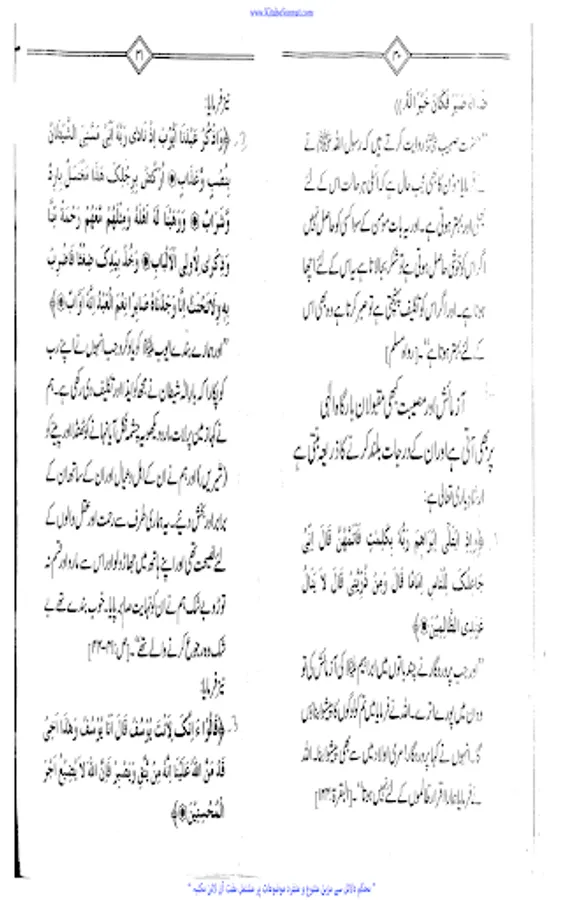 www.KitaboSunnat.com
۳۰
ضراء صبر فكان خيرا له))
حضرت صہیب روایت کرتے ہیں کہ رسول اللہ ﷺ نے
فرمایا: مومن کا بھی عجب حال ہے کہ اس کی ہر حالت اس کے لئے
بہتر ہوتی ہے۔ اور یہ بات مومن کے سوا کسی کو حاصل نہیں
اگر اس کو خوشی حاصل ہوتی ہے تو شکر بجا لاتا ہے یہ اس کے لئے اچھا
ہوتا ہے۔ اور اگر اس کو تکلیف پہنچتی ہے تو صبر کرتا ہے وہ بھی اس
کے لئے بہتر ہوتا ہے"۔ [رواہ مسلم]
آزمائش اور مصیبت کبھی مقبولان بارگاہ الٰہی
پر بھی آتی ہے اور ان کے درجات بلند کرنے کا ذریعہ بنتی ہے
ارشاد باری تعالی ہے:
1. ﴿وَإِذِ ابْتَلَى إِبْرَاهِيمَ رَبُّهُ بِكَلِمَتٍ فَأَتَمَّهُنَّ قَالَ إِنِّى
جَاعِلُكَ لِلنَّاسِ إِمَامًا قَالَ وَمِنْ ذُرِّيَّتِى قَالَ لَا يَنَالُ
عَهْدِى الظَّالِمِيْنَ﴾
"اور جب پروردگار نے چند باتوں میں ابراہیم کی آزمائش کی تو
وہ ان میں پورے اترے۔ اللہ نے فرمایا میں تم کو لوگوں کا پیشوا بناؤں
گا۔ انہوں نے کہا پروردگار! میری اولاد میں سے بھی پیشوا بنا۔ اللہ
نے فرمایا ہمارا اقرار ظالموں کے لئے نہیں ہوتا"۔ [البقرة:۱۲۴]
۳۱
نیز فرمایا:
2. ﴿وَاذْكُرْ عَبْدَنَا أَيُّوْبَ إِذْ نَادَى رَبَّهُ أَنِّى مَسَّنِىَ الشَّيْطَانُ
بِنُصْبٍ وَّعَذَابٍ اُرْكُضْ بِرِجْلِكَ هٰذَا مُغْتَسَلٌ بَارِدٌ
وَّشَرَابٌ وَوَهَبْنَا لَهُ أَهْلَهُ وَمِثْلَهُمْ مَّعَهُمْ رَحْمَةً مِّنَّا
وَذِكْرَى لِأُولِى الْأَلْبَابِ وَخُذْ بِيَدِكَ ضِغْثًا فَاضْرِبْ
بِهِ وَلَا تَحْنَثْ إِنَّا وَجَدْنَاهُ صَابِرًا نِعْمَ الْعَبْدُ إِنَّهُ أَوَّابٌ﴾
"اور ہمارے بندے ایوب کو یاد کرو جب انہوں نے اپنے رب
کو پکارا کہ بار الہٰ شیطان نے مجھ کو ایذا اور تکلیف دی رکھی ہے۔ ہم
نے کہا زمین پر لات مارو دیکھو یہ چشمہ نکل آیا نہانے کو ٹھنڈا اور پینے کو
(شیریں) اور ہم نے ان کے اہل وعیال اور ان کے ساتھ ان کے
برابر اور بخش دیئے۔ یہ ہماری طرف سے رحمت اور عقل والوں کے
لئے نصیحت تھی اور اپنے ہاتھ میں جھاڑو لو اور اس سے مارو اور قسم نہ
توڑو بے شک ہم نے ان کو نہایت صابر پایا۔ خوب بندے تھے بے
شک وہ رجوع کرنے والے تھے"۔ [ص: ۴۱-۴۴]
نیز فرمایا:
3. ﴿قَالُوْا ءَاِنَّكَ لَاَنْتَ يُوْسُفُ قَالَ أَنَا يُوْسُفُ وَهٰذَا أَخِىْ
قَدْ مَنَّ اللَّهُ عَلَيْنَا إِنَّهُ مَنْ يَّتَّقِ وَيَصْبِرْ فَإِنَّ اللَّهَ لَا يُضِيْعُ أَجْرَ
الْمُحْسِنِيْنَ﴾
" محکم دلائل سے مزین متنوع و منفرد موضوعات پر مشتمل مفت آن لائن مکتبہ "